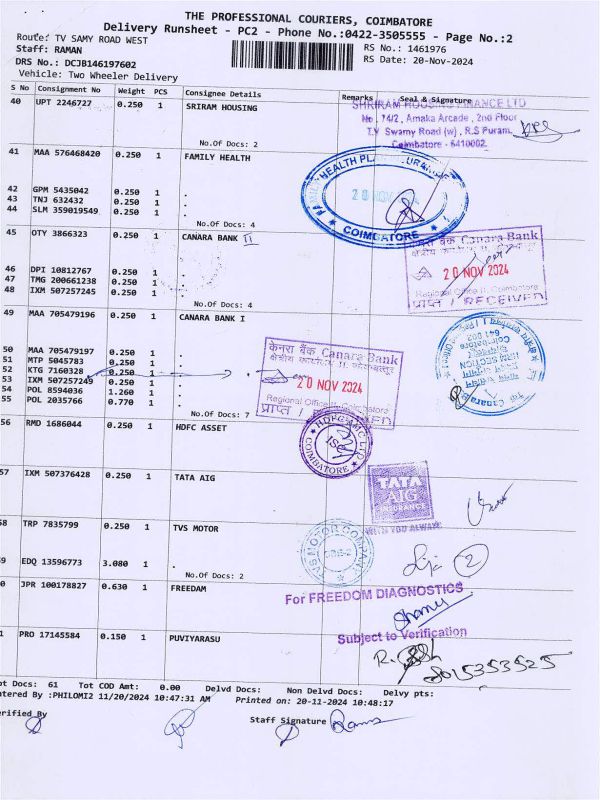 THE PROFESSIONAL COURIERS, COIMBATORE
Delivery Runsheet - PC2 - Phone No.:0422-3505555 - Page No.:2
Route: TV SAMY ROAD WEST
RS No.: 1461976
Staff: RAMAN
RS Date: 20-Nov-2024
DRS No.: DCJB146197602
Vehicle: Two Wheeler Delivery
S No Consignment No Weight PCS Consignee Details Remarks Seal & Signature
40 UPT 2246727 0.250 1 SRIRAM HOUSING
SHRIRAM HOUSING FINANCE LTD
No. 74/2, Amaka Arcade, 2nd Floor
T.V Swamy Road (w), R.S Puram.
Coimbatore - 6410002.
No.Of Docs: 2
41 MAA 576468420 0.250 1 FAMILY HEALTH
FAMILY HEALTH PLAN
20 NOV
COIMBATORE
42 GPM 5435042 0.250 1 .
43 TNJ 632432 0.250 1 .
44 SLM 359019549 0.250 1 .
No.Of Docs: 4
45 OTY 3866323 0.250 1 CANARA BANK II
केनरा बैंक Canara Bank
20 NOV 2024
Regional Office II, Coimbatore
प्राप्त / RECEIVED
46 DPI 10812767 0.250 1 .
47 TMG 200661238 0.250 1 .
48 IXM 507257245 0.250 1 .
No.Of Docs: 4
49 MAA 705479196 0.250 1 CANARA BANK I
Coimbatore
641 002
HRM SECTION
Canara
50 MAA 705479197 0.250 1 .
51 MTP 5045783 0.250 1 .
52 KTG 7160328 0.250 1 .
53 IXM 507257249 0.250 1 .
54 POL 8594036 1.260 1 .
55 POL 2035766 0.770 1 .
No.Of Docs: 7
केनरा बैंक Canara Bank
20 NOV 2024
Regional Office II, Coimbatore
प्राप्त /
56 RMD 1686044 0.250 1 HDFC ASSET
HDFC AMC LTD
ISC
COIMBATORE
57 IXM 507376428 0.250 1 TATA AIG
TATA
AIG
INSURANCE
WITH YOU ALWAYS
58 TRP 7835799 0.250 1 TVS MOTOR
TVS MOTOR COMPANY
2
59 EDQ 13596773 3.080 1 .
No.Of Docs: 2
0 JPR 100178827 0.630 1 FREEDAM
For FREEDOM DIAGNOSTICS
Subject to Verification
1 PRO 17145584 0.150 1 PUVIYARASU
8015353525
ot Docs: 61 Tot COD Amt: 0.00 Delvd Docs: Non Delvd Docs: Delvy pts:
ntered By :PHILOMI2 11/20/2024 10:47:31 AM Printed on: 20-11-2024 10:48:17
erified By
Staff Signature